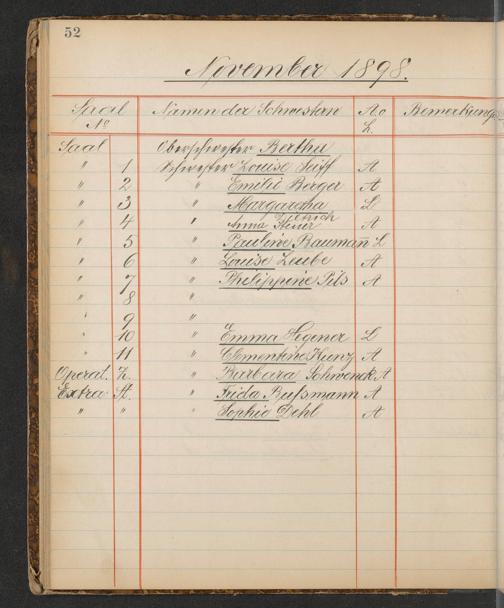 52
November 1898.
Saal No Namen der Schwestern A o L. Bemerkungen
Saal Oberschwester Bertha
" 1 Schwester Louise Seiff A
" 2 " Emilie Berger A
" 3 " Margaretha L
" 4 " Anna A
" 5 " Pauline Baumann L
" 6 " Louise Laube A
" 7 " Philippine Pils A
" 8 "
" 9 "
" 10 " Emma Hegener L
" 11 " Clementine Kunz A
Operat. Z. " Barbara Schwenck A
Extra St. " Frida Rußmann A
" " " Sophie Dehl A